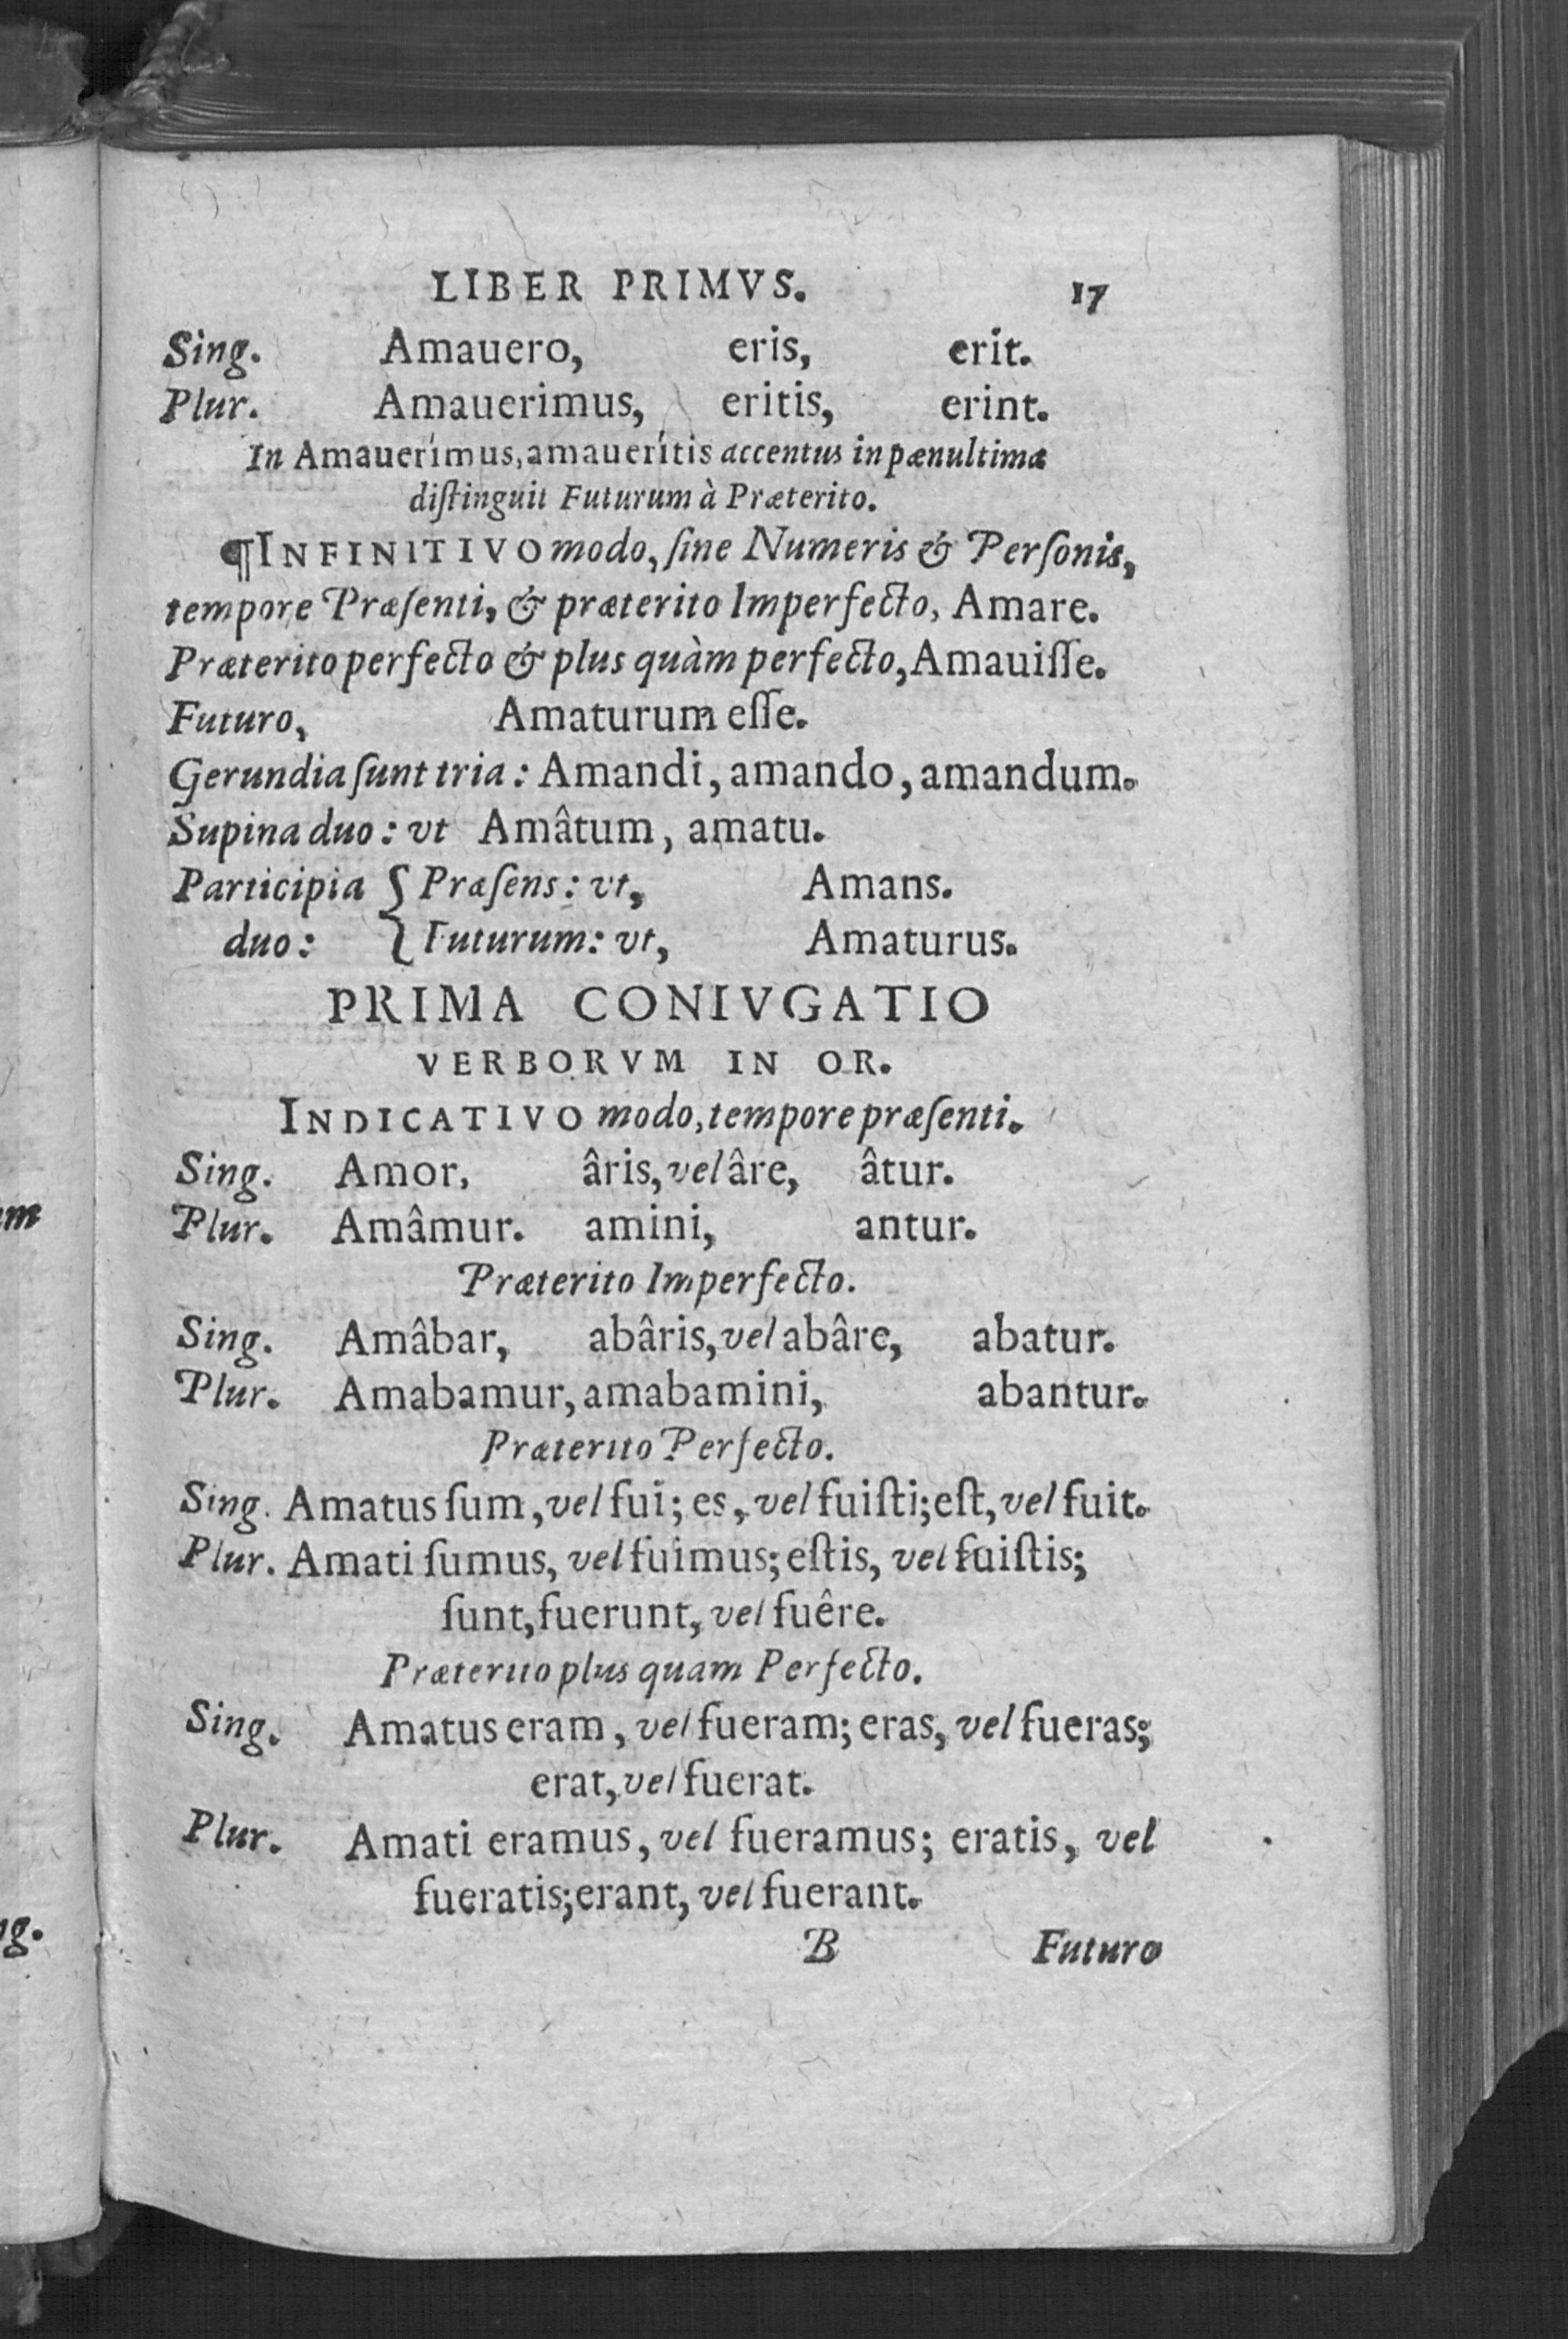 LIBER PRIMVS. 17
Sing. Amauero, eris, erit.
Plur. Amauerimus, eritis, erint.
In Amauerímus, amauerítis accentus in pænultima
diſtinguit Futurum à Præterito.
¶INFINITIVO modo, ſine Numeris & Perſonis,
tempore Præſenti, & præterito Imperfecto, Amare.
Præterito perfecto & plus quàm perfecto, Amauiſſe.
Futuro, Amaturum eſſe.
Gerundia ſunt tria: Amandi, amando, amandum.
Supina duo: vt Amâtum, amatu.
Participia { Præſens: vt, Amans.
duo: { Futurum: vt, Amaturus.
PRIMA CONIVGATIO
VERBORVM IN OR.
INDICATIVO modo, tempore præſenti.
Sing. Amor, âris, vel âre, âtur.
Plur. Amâmur. amini, antur.
Præterito Imperfecto.
Sing. Amâbar, abâris, vel abâre, abatur.
Plur. Amabamur, amabamini, abantur.
Præterito Perfecto.
Sing. Amatus ſum, vel fui; es, vel fuiſti; eſt, vel fuit.
Plur. Amati ſumus, vel fuimus; eſtis, vel fuiſtis;
ſunt, fuerunt, vel fuêre.
Præterito plus quam Perfecto.
Sing. Amatus eram, vel fueram; eras, vel fueras;
erat, vel fuerat.
Plur. Amati eramus, vel fueramus; eratis, vel
fueratis; erant, vel fuerant.
B Futuro